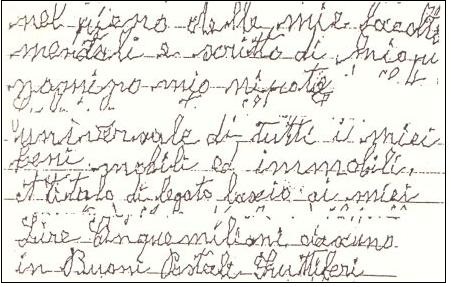 nel pieno delle mie facoltà
mentali e scritto di mio pu
nomino mio nipote
universale di tutti ii miei
beni mobili ed immobili.
A titolo di legato lascio ai miei
Lire Cinquemilioni ciascuno
in Buoni Postali Fruttiferi